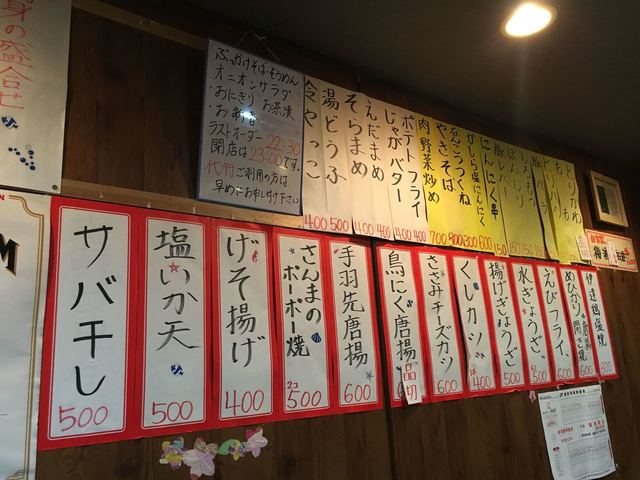 身の盛合せ
ぶっかけそば・そうめん
オニオンサラダ
・おにぎり お茶漬
・お新香
ラストオーダー 22:30
閉店は 23:00です。
代行ご利用の方は
早めにお申し付け下さい
冷やっこ 400
湯どうふ 500
そらまめ 400
えんだまめ 400
じゃがバター 400
ポテトフライ 400
肉野菜炒め 700
やきそば 800
なんこつつくね 300
にんにく串 150
サバ干し 500
塩いか天 500
げそ揚げ 400
さんまのポーポー焼 2コ 500
手羽先唐揚 600
鳥にく唐揚 品切
ささみチーズカツ 600
くしカツ 1本 400
揚げぎょうざ 500
水ぎょうざ 500
えびフライ 600
めひかり唐揚 開き焼 600
伊達鶏塩焼